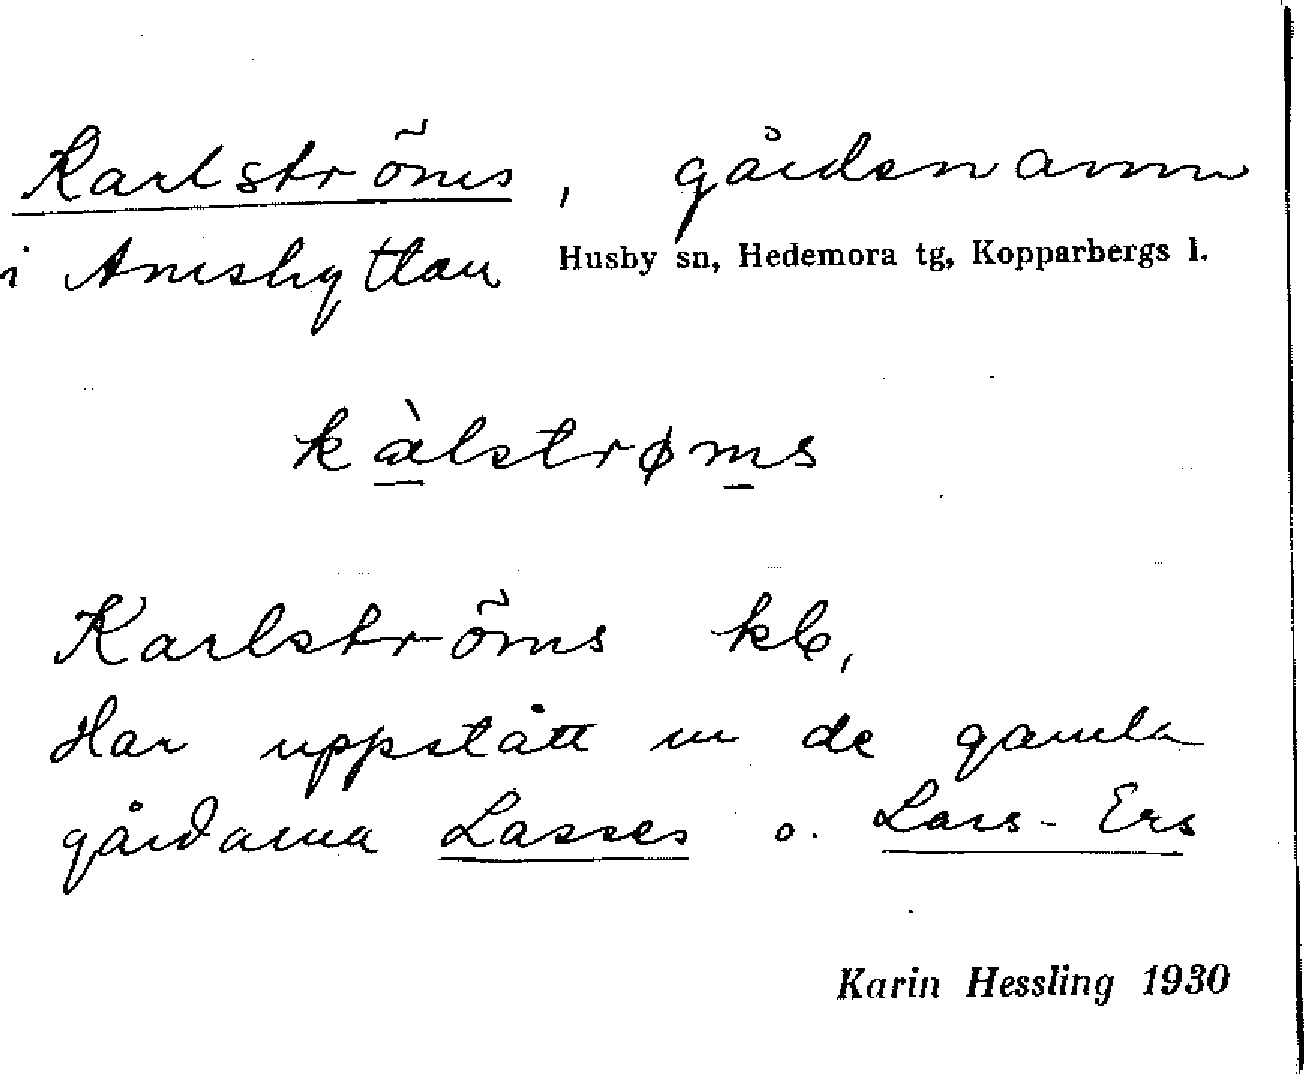 Karlströms, gårdsnamn
i Amshyttan Husby sn, Hedemora tg, Kopparbergs l.
kàlstrøms
Karlströms kb,
Har uppstått ur de gamla
gårdarna Lasses o. Lars-Ers
Karin Hessling 1930